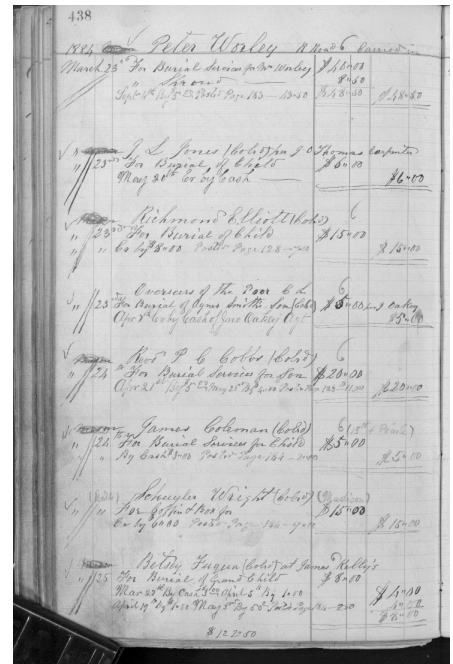 438
1884 Peter Worley 6
March 23rd For Burial Services for Mrs Worley $40=00
" Shroud 8=50
Sept 4th By 5.00 Posted Page 183 — 43=50 $48=50 $48=50
" J L Jones (Cold) for J O Thomas Carpenter
" 23rd For Burial of Child $6=00
May 20th Cr by Cash $6=00
Richmond Elliott (Cold) 6
" 23rd For Burial of Child $15=00
" Cr by $8=00 Posted Page 128 — 7=00 $15=00
Overseers of the Poor 6
" 23rd For Burial of Agnes Smiths Son (Cold) $5=00 for J Oakey
Apr 8th Cr by Cash of Oakey Agt $5=00
Revd P C Cobbs (Cold) 6
" 24th For Burial Services for Son $20=00
Apr 21st By 5.00 May 25th By 4.00 Posted Page 183 11=00 $20=00
James Coleman (Cold) 6 (15th & Pearl)
" 24th For Burial Services for Child $5=00
" By Cash $3=00 Posted Page 184 — 2=00 $5=00
Schuyler Wright (Cold) (Madison)
" " For Coffin & Box for $15=00
Cr by 6=00 Posted Page 184 — 9=00 $15=00
Betsey Fuqua (Cold) at James Kelly's
" 25 For Burial of Grand Child $8=00
Mar 29th By Cash 3.00 April 5th By 1=00 $4=00
April 19th By 1=50 May 3rd By 50 Posted Page 184 — 2=00 4=00
$8=00
$122=50